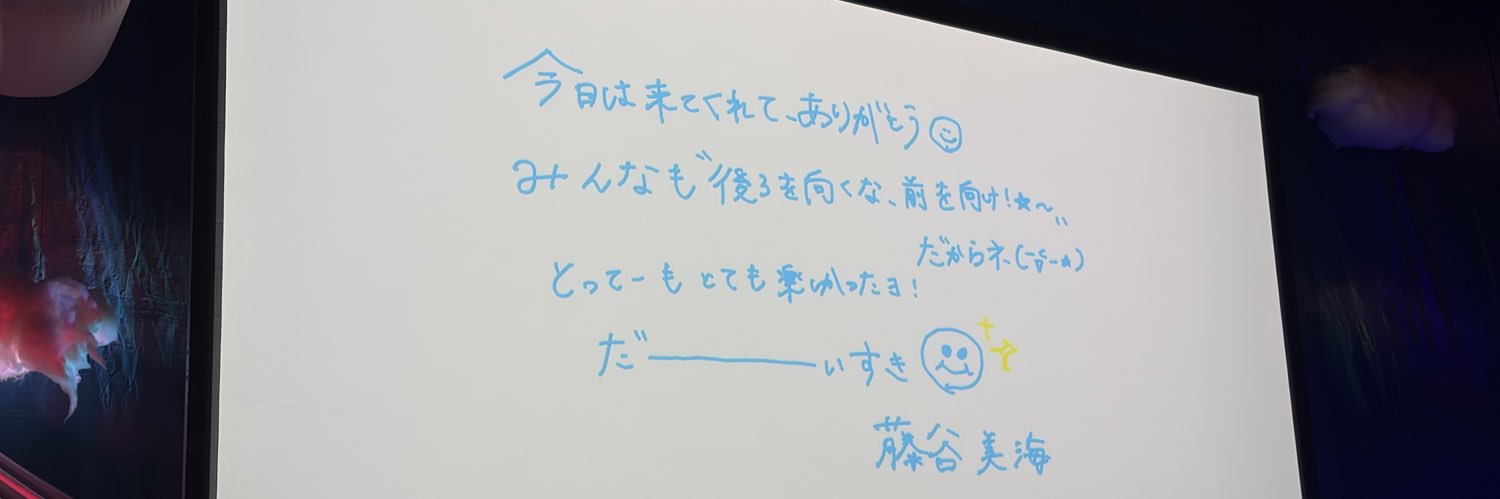 今日は来てくれて、ありがとう
みんなも"後ろを向くな、前を向け!☆〜"
だからネ
とってーもとても楽しかったヨ!
だ――――いすき
藤谷美海